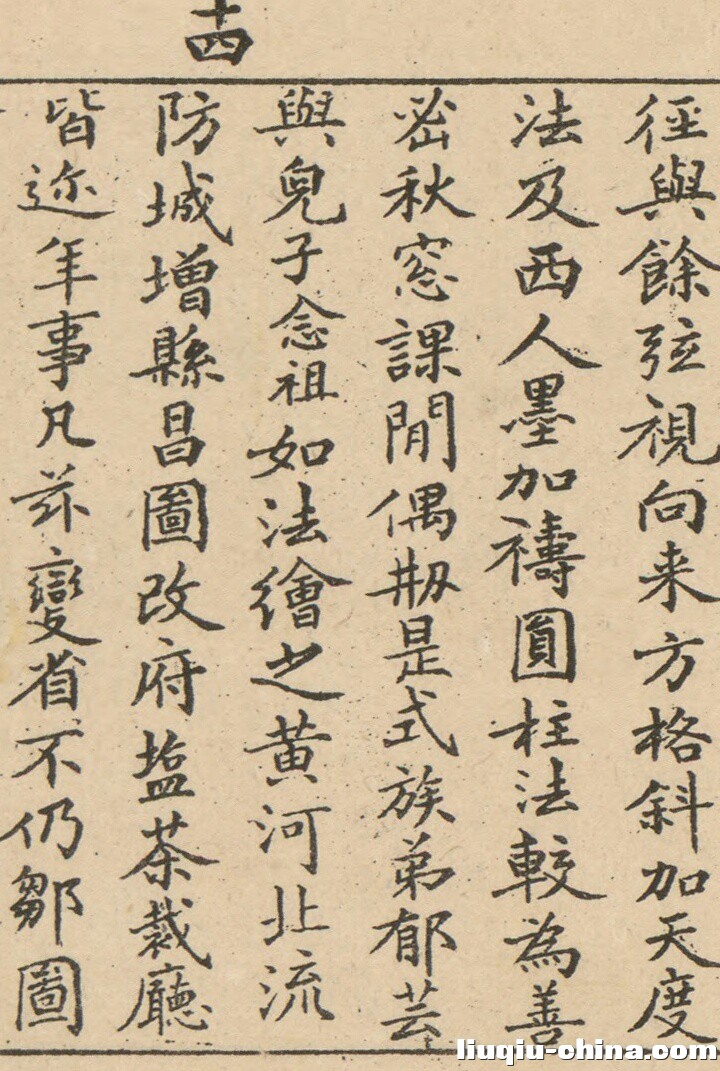 十四
徑與餘弦視向来方格斜加天度
法及西人墨加禱圓柱法較為善
密秋窓課閒偶剏是式族弟郁芸
與皃子念祖如法繪之黄河北流
防城增縣昌圖改府塩茶裁廳
皆迩年事凡玆變省不仍鄒圖
liuqiu-china.com